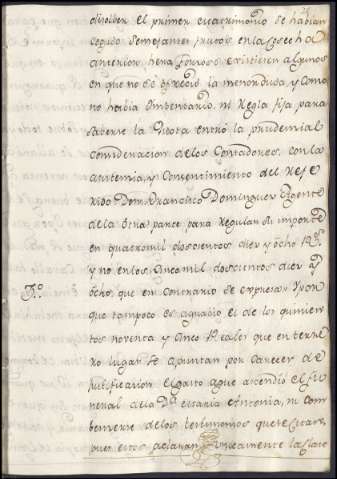 disolver el primer matrimonio se habian
seguido Semejantes frutos en la Cosecha
anterior, hera forzoso existiesen algunos
en que no se ofrecio la menor duda, y Como
no habia Imbentario, ni Regla fija para
saberse la Quota entró la prudencial
consideracion de los Contadores, con la
audiencia, y Consentimiento del Refe
rido Dom. Francisco Dominguez Agente
de la otra parte para Regular su importe
en quatro mil doscientos diez y ocho Rs.
y no en los Cinco mil doscientos diez y
3.º ocho, que en Contrario se expresan Y con
que tampoco es aguabio el de los quinien
tos noventa y cinco Reales que en terze
ro lugar se apuntan por Carecer de
Justificacion el gasto a que ascendió el fu
neral de la Da. Maria Antonia, ni Com
benirse de los testimonios que se Citan,
pues estos aclaran unicamente la Clase